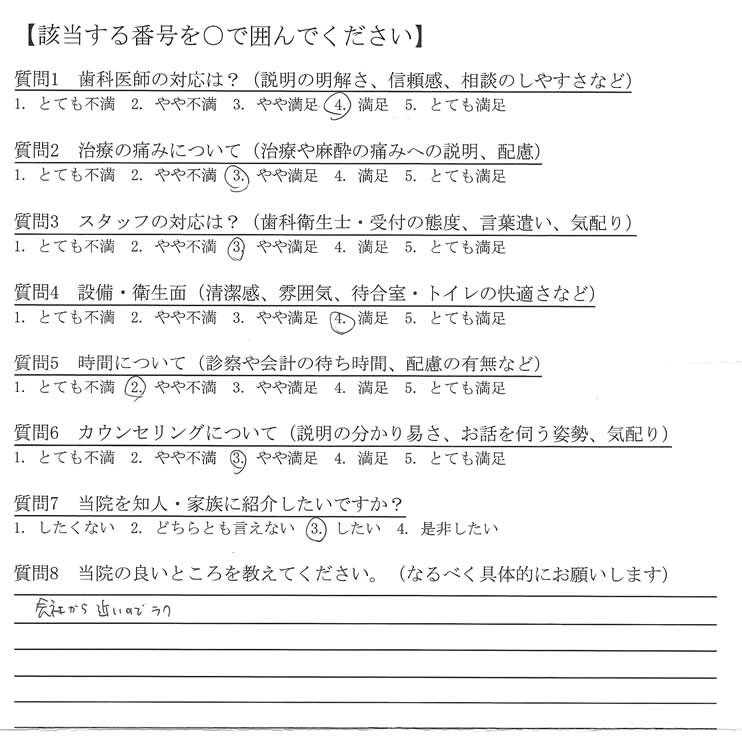 【該当する番号を○で囲んでください】
質問1　歯科医師の対応は？（説明の明解さ、信頼感、相談のしやすさなど）
1. とても不満　2. やや不満　3. やや満足　4. 満足　5. とても満足
質問2　治療の痛みについて（治療や麻酔の痛みへの説明、配慮）
1. とても不満　2. やや不満　3. やや満足　4. 満足　5. とても満足
質問3　スタッフの対応は？（歯科衛生士・受付の態度、言葉遣い、気配り）
1. とても不満　2. やや不満　3. やや満足　4. 満足　5. とても満足
質問4　設備・衛生面（清潔感、雰囲気、待合室・トイレの快適さなど）
1. とても不満　2. やや不満　3. やや満足　4. 満足　5. とても満足
質問5　時間について（診察や会計の待ち時間、配慮の有無など）
1. とても不満　2. やや不満　3. やや満足　4. 満足　5. とても満足
質問6　カウンセリングについて（説明の分かり易さ、お話を伺う姿勢、気配り）
1. とても不満　2. やや不満　3. やや満足　4. 満足　5. とても満足
質問7　当院を知人・家族に紹介したいですか？
1. したくない　2. どちらとも言えない　3. したい　4. 是非したい
質問8　当院の良いところを教えてください。（なるべく具体的にお願いします）
会社から近いのでラク